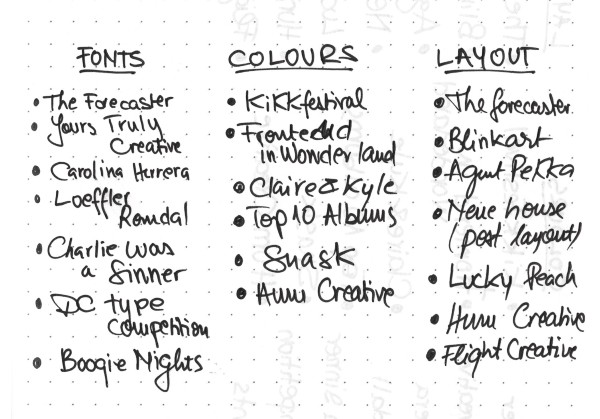 FONTS
• The Forecaster
• Yours Truly
Creative
• Carolina Herrera
• Loeffler
Randal
• Charlie Was
a Sinner
• DC type
competition
• Boogie Nights
COLOURS
• Kikkfestival
• Frontend
in Wonderland
• Claire & Kyle
• Top 10 Albums
• Snask
• Humu Creative
LAYOUT
• The forecaster
• Blinkart
• Agent Pekka
• Neue house
(post layout)
• Lucky Peach
• Humu Creative
• Flight Creative